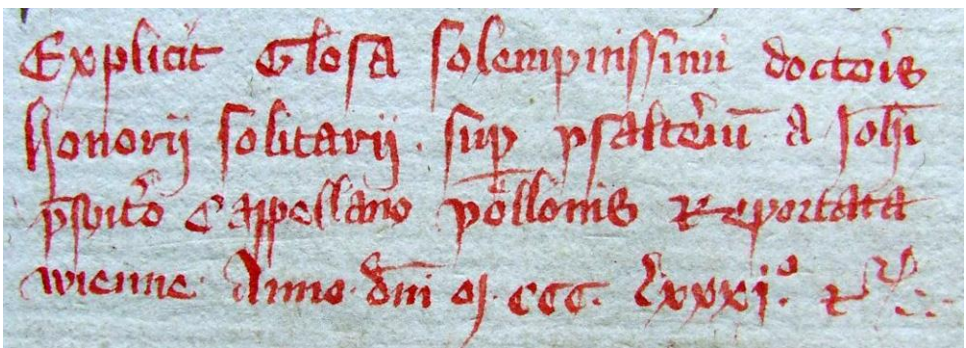 Explicit Glosa solempnissimi doctoris
Honorii solitarii . sup psalteriū a Johe
psbitro Cappellano pollonis Reportata
wienne . Anno . dni M . CCC . lxxxi .º